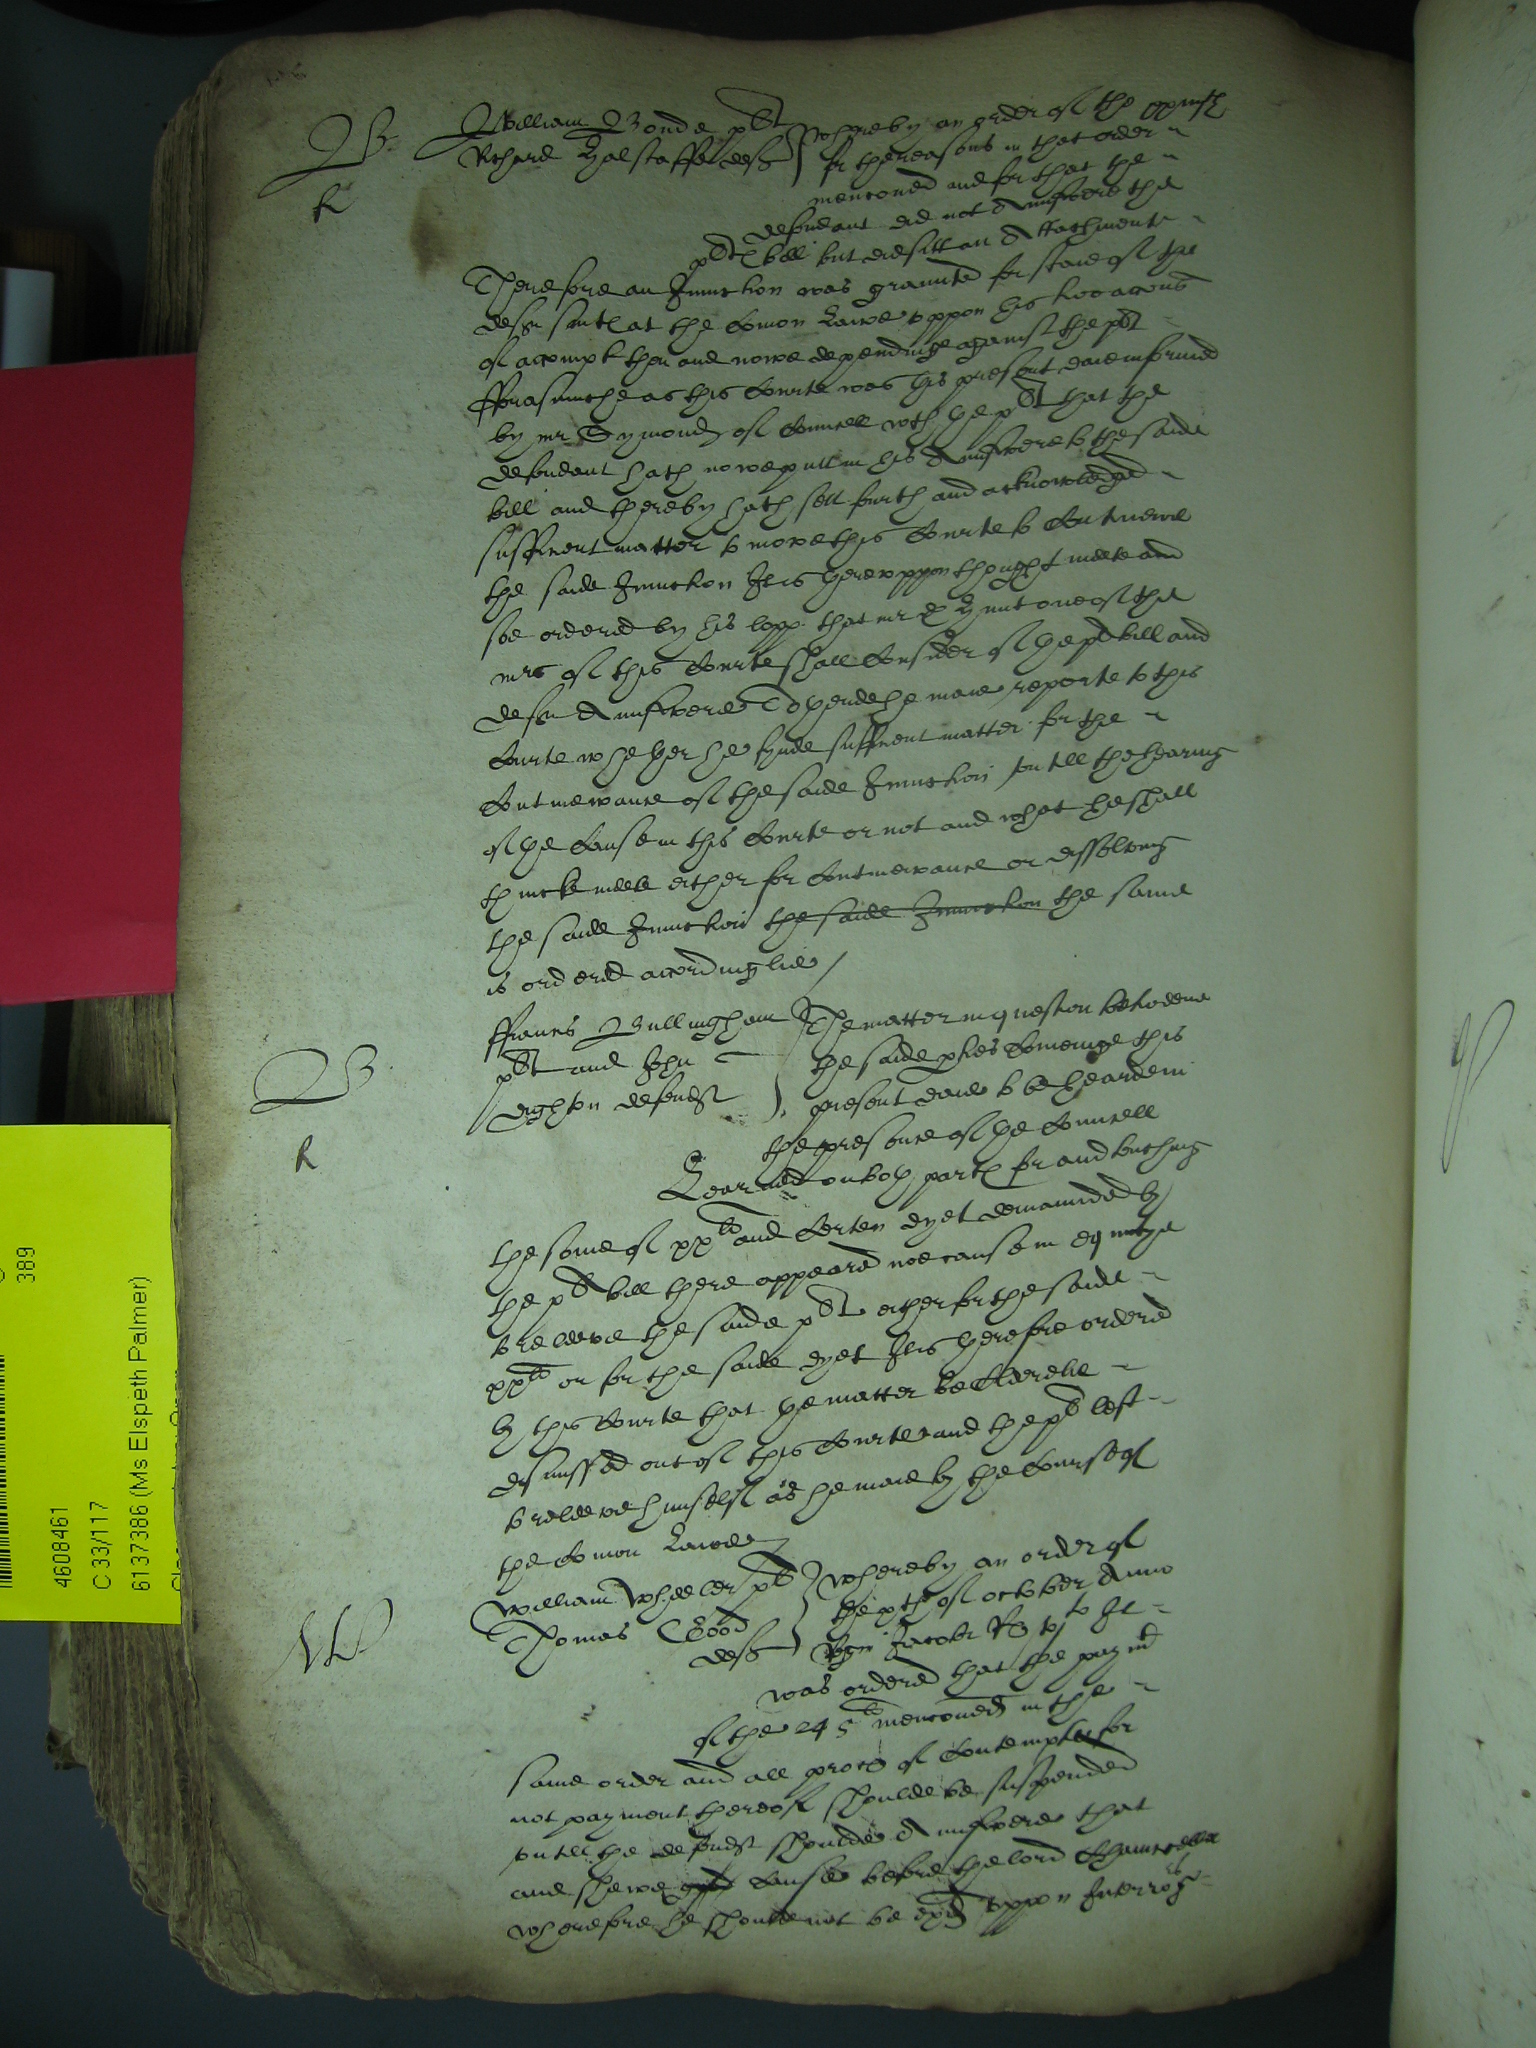 B
R
William Bonde plt
Richard Halstaffe deft
whereby an order of the xxvijth
for the reasons in that order
mencioned and for that the
defendant did not Aunswere the
pltes bill but did sitt an Attachmente
Therefore an Iniunction was graunted for staie of the
deftes suite at the Comon Lawe uppon his twoe accons
of accompt then and nowe dependinge against the plt
fforasmuche as this Courte was this present daie informed
by mr Symondes of Councell with the plt that the
defendant hath nowe putt in his Aunswere to the saide
bill and thereby hath sett fourth and acknowledged
sufficient matter to move this Courte to Contynewe
the saide Iniunction It is hereuppon thought meete and
soe ordered by his lopp that mr D Hunt one of the
mrs of this Courte shall Consider of the plts bill and
deftes Aunswere To thende he maie reporte to this
Courte whether he fynde sufficient matter for the
Contynewance of the saide Iniunction untill the hearing
of the Cause in this Courte or not and what he shall
thincke meete either for Contynewance or dissolving
the saide Iniunction the saide Iniunction the same
is ordered accordinglie
B
R
ffrauncis Bullingham
plt and John
Dighton defendt
The matter in question betweene
the saide parties Cominge this
present daie to be heard in
the presence of the Councell
Learned on both partes for and touching
the some of xxli and Certen dyet demaunded by
the plts bill there appeared noe cause in equitye
to releeve the saide plt either for the saide
xxli or for the saide dyet It is therefore ordered
by this Courte that the matter be Cleerelie
dismissed out of this Courte and the plt left
to releeve himself as he maie by the Course of
the Comon Lawe
W
William Wheeler plt
Thomas Wood
deft
whereby an order of
the xth of October Anno
Rgni Jacobi Rs to It
was ordered that the paymt
of the 245li mencioned in the
same order and all proces of Contempte for
not payment thereof shoulde be suspended
untill the defendt shoulde Aunswere that
and shewe good Cause before the lord Chauncellor
wherefore he shoulde not be exd uppon Interrog
4608461
C 33/117
6137386 (Ms Elspeth Palmer)
389